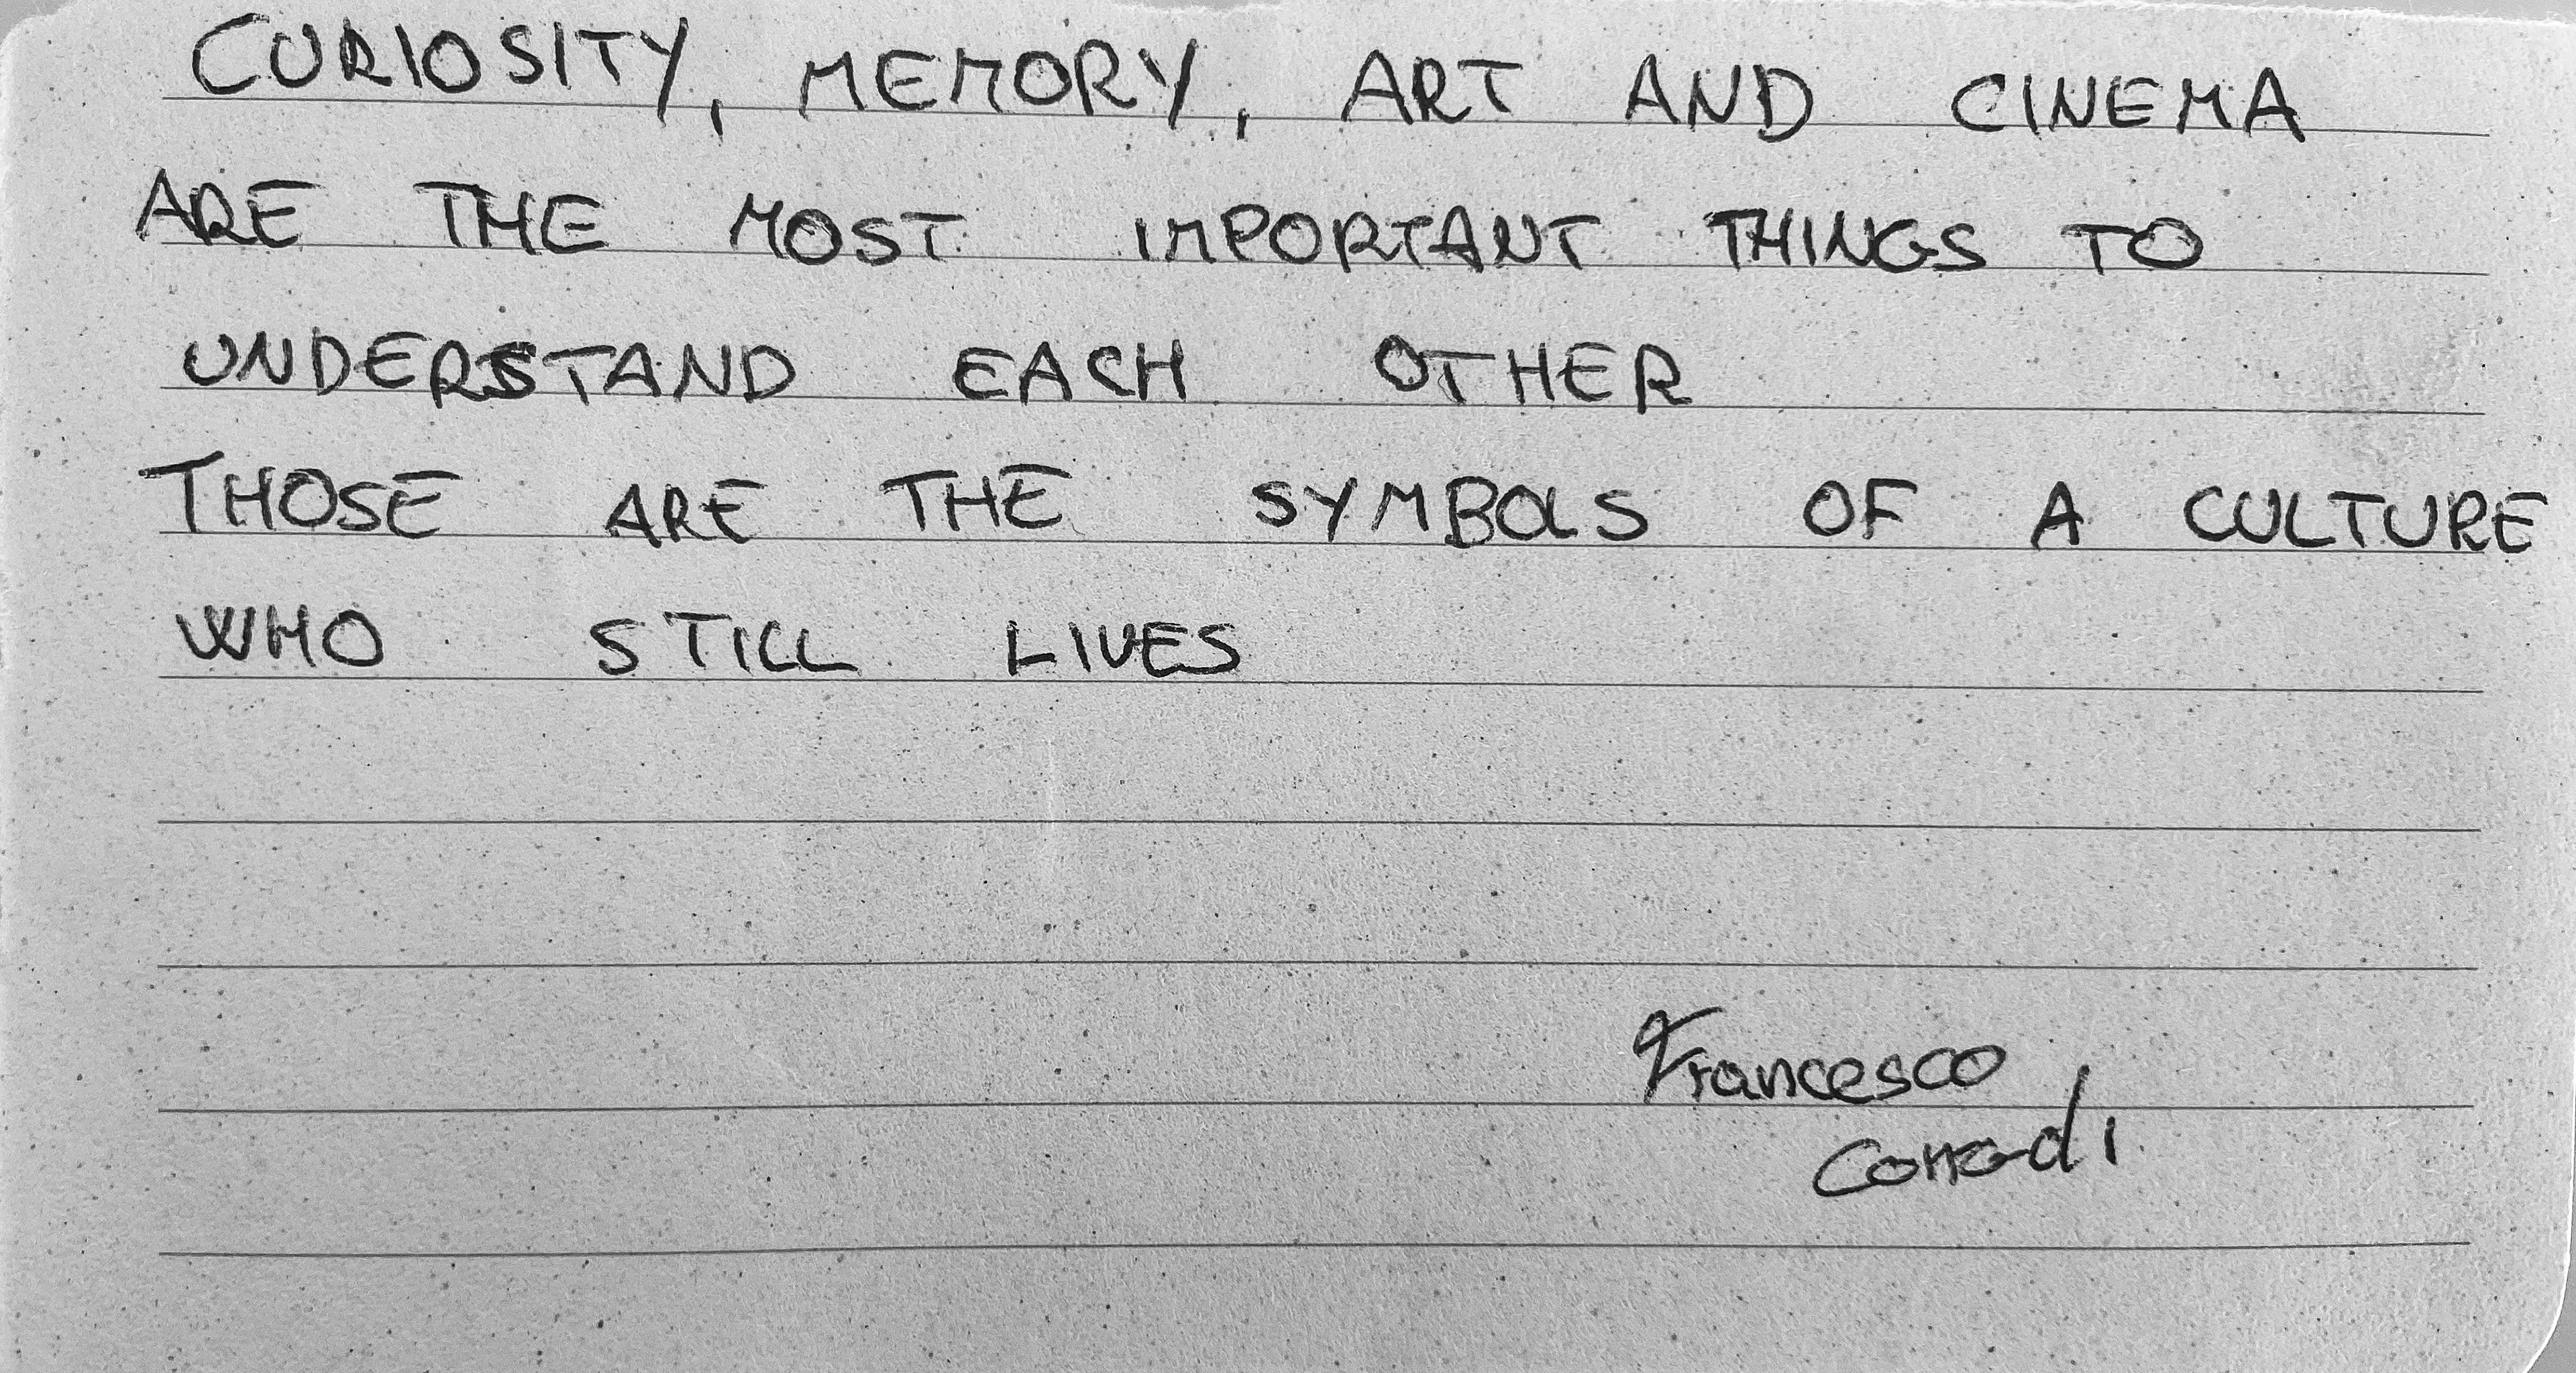 CURIOSITY, MEMORY, ART AND CINEMA
ARE THE MOST IMPORTANT THINGS TO
UNDERSTAND EACH OTHER
THOSE ARE THE SYMBOLS OF A CULTURE
WHO STILL LIVES
Francesco
Corradi